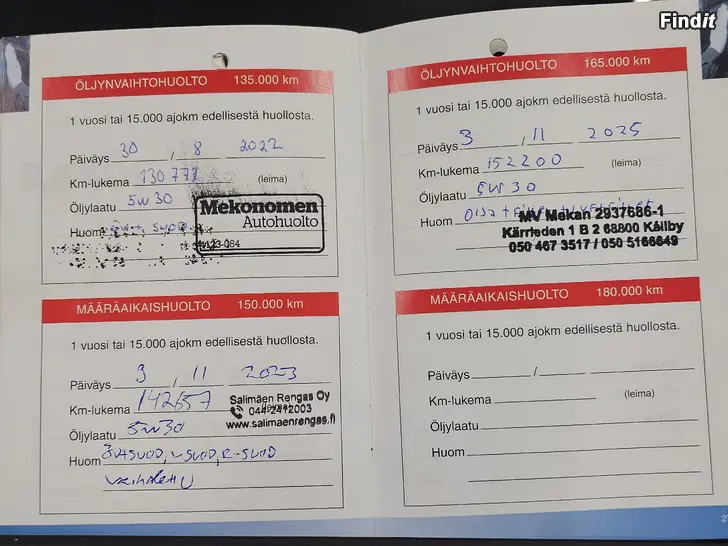 Findit
ÖLJYNVAIHTOHUOLTO 135.000 km
1 vuosi tai 15.000 ajokm edellisestä huollosta.
Päiväys 30 / 8 2022
Km-lukema 130 777 (leima)
Öljylaatu 5W30
Huom
Mekonomen
Autohuolto
MÄÄRÄAIKAISHUOLTO 150.000 km
1 vuosi tai 15.000 ajokm edellisestä huollosta.
Päiväys 3 / 11 2023
Km-lukema 142657
Öljylaatu 5W30
Huom
Salimäen Rengas Oy
044-2412003
www.salimaenrengas.fi
ÖLJYNVAIHTOHUOLTO 165.000 km
1 vuosi tai 15.000 ajokm edellisestä huollosta.
Päiväys 3 / 11 2025
Km-lukema 152200 (leima)
Öljylaatu 5W30
Huom
MV Mekan 2937686-1
Kärrleden 1 B 2 68800 Kållby
050 467 3517 / 050 5166649
MÄÄRÄAIKAISHUOLTO 180.000 km
1 vuosi tai 15.000 ajokm edellisestä huollosta.
Päiväys /
Km-lukema (leima)
Öljylaatu
Huom